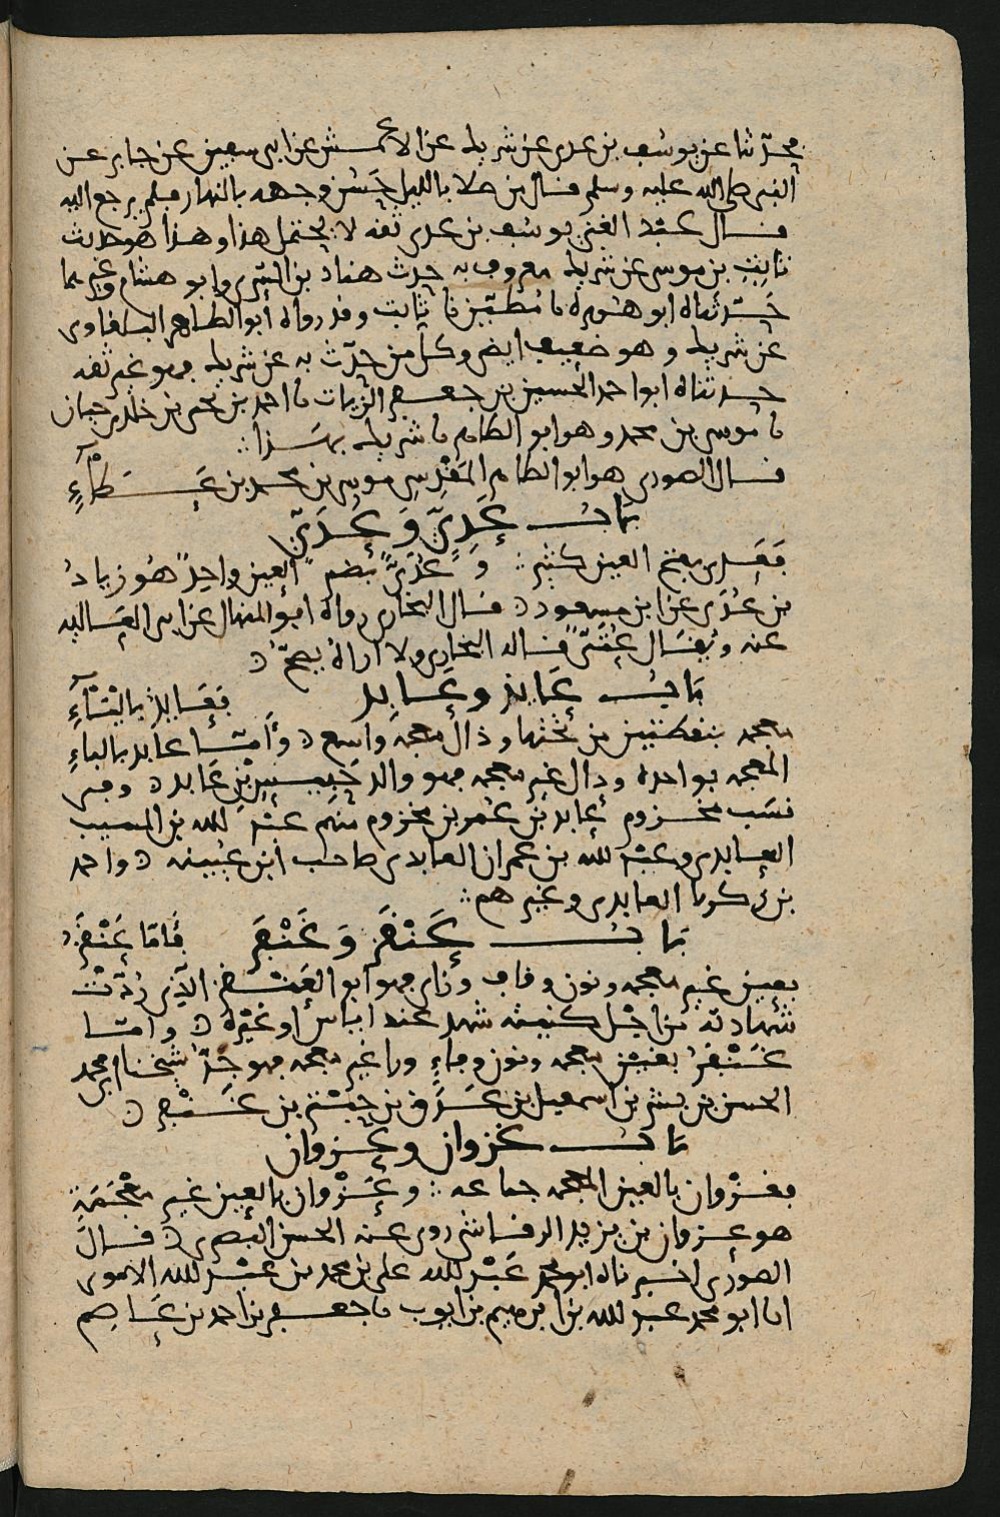 محدثنا عن يوسف بن عدى عن شريك عن الاعمش عن ابى سفين عن جابر عن
النبى صلى الله عليه وسلم قال من صلا بالليل حسن وجهه بالنهار فلم يرجع اليه
قال عبد الغنى يوسف بن عدى ثقة لا يحتمل هذا وهذا هو حديث
ثابت بن موسى عن شريك معروف به حدث هناد بن السرى وابو هشام وغيرهما
حدثناه ابو هريرة نا مطين نا ثابت وقد رواه ابو الطاهر البلقاوى
عن شريك وهو ضعيف ايضا وكل من حدث به عن شريك فهو غير ثقة
حدثناه ابو احمد الحسين بن جعفر الزيات نا احمد بن يحيى بن خلد بن حيان
نا موسى بن محمد وهو ابو الطاهر نا شريك بهذا
قال الصورى هو ابو الطاهر المقدسى موسى بن محمد بن عطاء
باب عَدِيّ وَ عُدَيّ
فعدى بفتح العين كثير وَ عُدَيّ بضم العين واحد هو زياد
بن عدى عن ابن مسعود قال البخارى رواه ابو المنهال عن ابى العالية
عنه ويقال عُتَىّ قاله البخارى ولا اراه يصح
باب عَايذ وعَابد فعايذ باليآء
معجمة بنقطتين من تحتها وذال معجمة واسع وأما عابد بالباء
المعجمة بواحدة ودال غير معجمة فهو والد حبيس بن عابد وفى
نسب مخزوم عابد بن عمر بن مخزوم منهم عبد الله بن المسيب
العابدى وعبد الله بن عمران العابدى صاحب ابن عيينة واحمد
بن زكريا العابدى وغيرهم
باب عَنْقَز وَ غَنْفَر فأما عَنْقَز
بعين غير معجمة ونون وقاف وزاى فهو ابو العنقز الذى ردت
شهادته من اجل كنيته شهد عند اياس او غيره واما
غنفر بغين معجمة ونون وفاء وراء غير معجمة فهو جد شيخنا محمد
الحسن بن بشر بن اسمعيل بن غدق بن حبتر بن غنفر
باب غزوان وعزوان
فغزوان بالغين المعجمة جماعة وعَزْوان بالعين غير معجمة
هو عزوان بن يزيد الرقاشى روى عنه الحسن البصرى قال
الصورى اخبرناه ابو محمد عبد الله على بن محمد بن عبد الله الاموى
انا ابو محمد عبد الله بن ابرهيم بن ايوب نا جعفر بن احمد بن عاصم